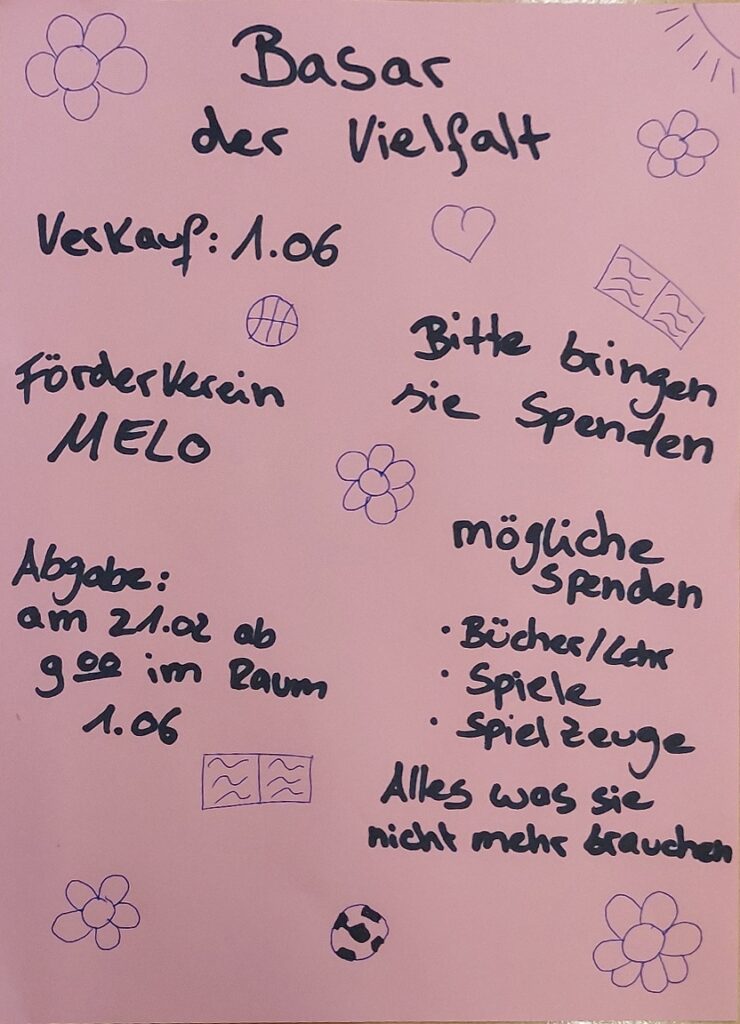 Basar
der Vielfalt
Verkauf: 1.06
Förderverein
MELO
Bitte bringen
sie Spenden
Abgabe:
am 21.02 ab
9 00 im Raum
1.06
mögliche
Spenden
· Bücher/Lehr
· Spiele
· Spielzeuge
Alles was sie
nicht mehr brauchen